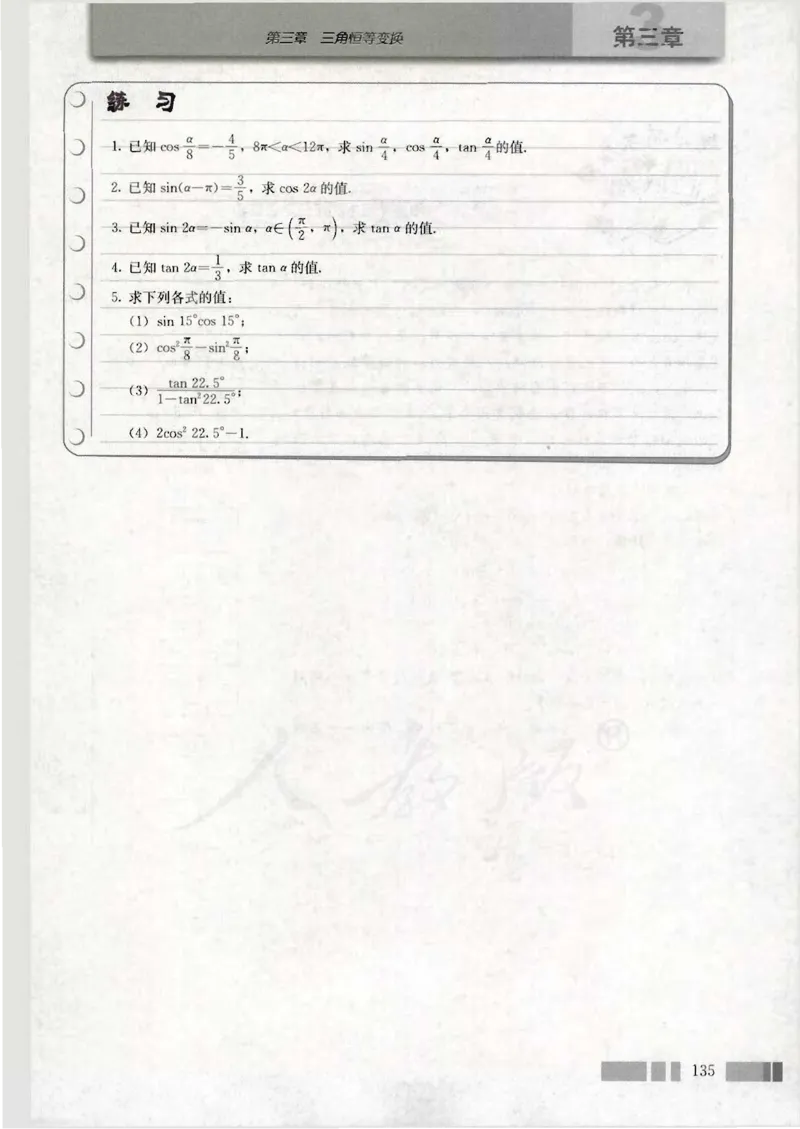 第三章 三角恒等变换
第三章
练 习
1. 已知 cos α/8=-4/5, 8π<α<12π, 求 sin α/4, cos α/4, tan α/4 的值.
2. 已知 sin(α-π)=3/5, 求 cos 2α 的值.
3. 已知 sin 2α=-sin α, α∈(π/2, π), 求 tan α 的值.
4. 已知 tan 2α=1/3, 求 tan α 的值.
5. 求下列各式的值:
(1) sin 15°cos 15°;
(2) cos² π/8-sin² π/8;
(3) tan 22.5°/1-tan²22.5°;
(4) 2cos² 22.5°-1.
人教版
135